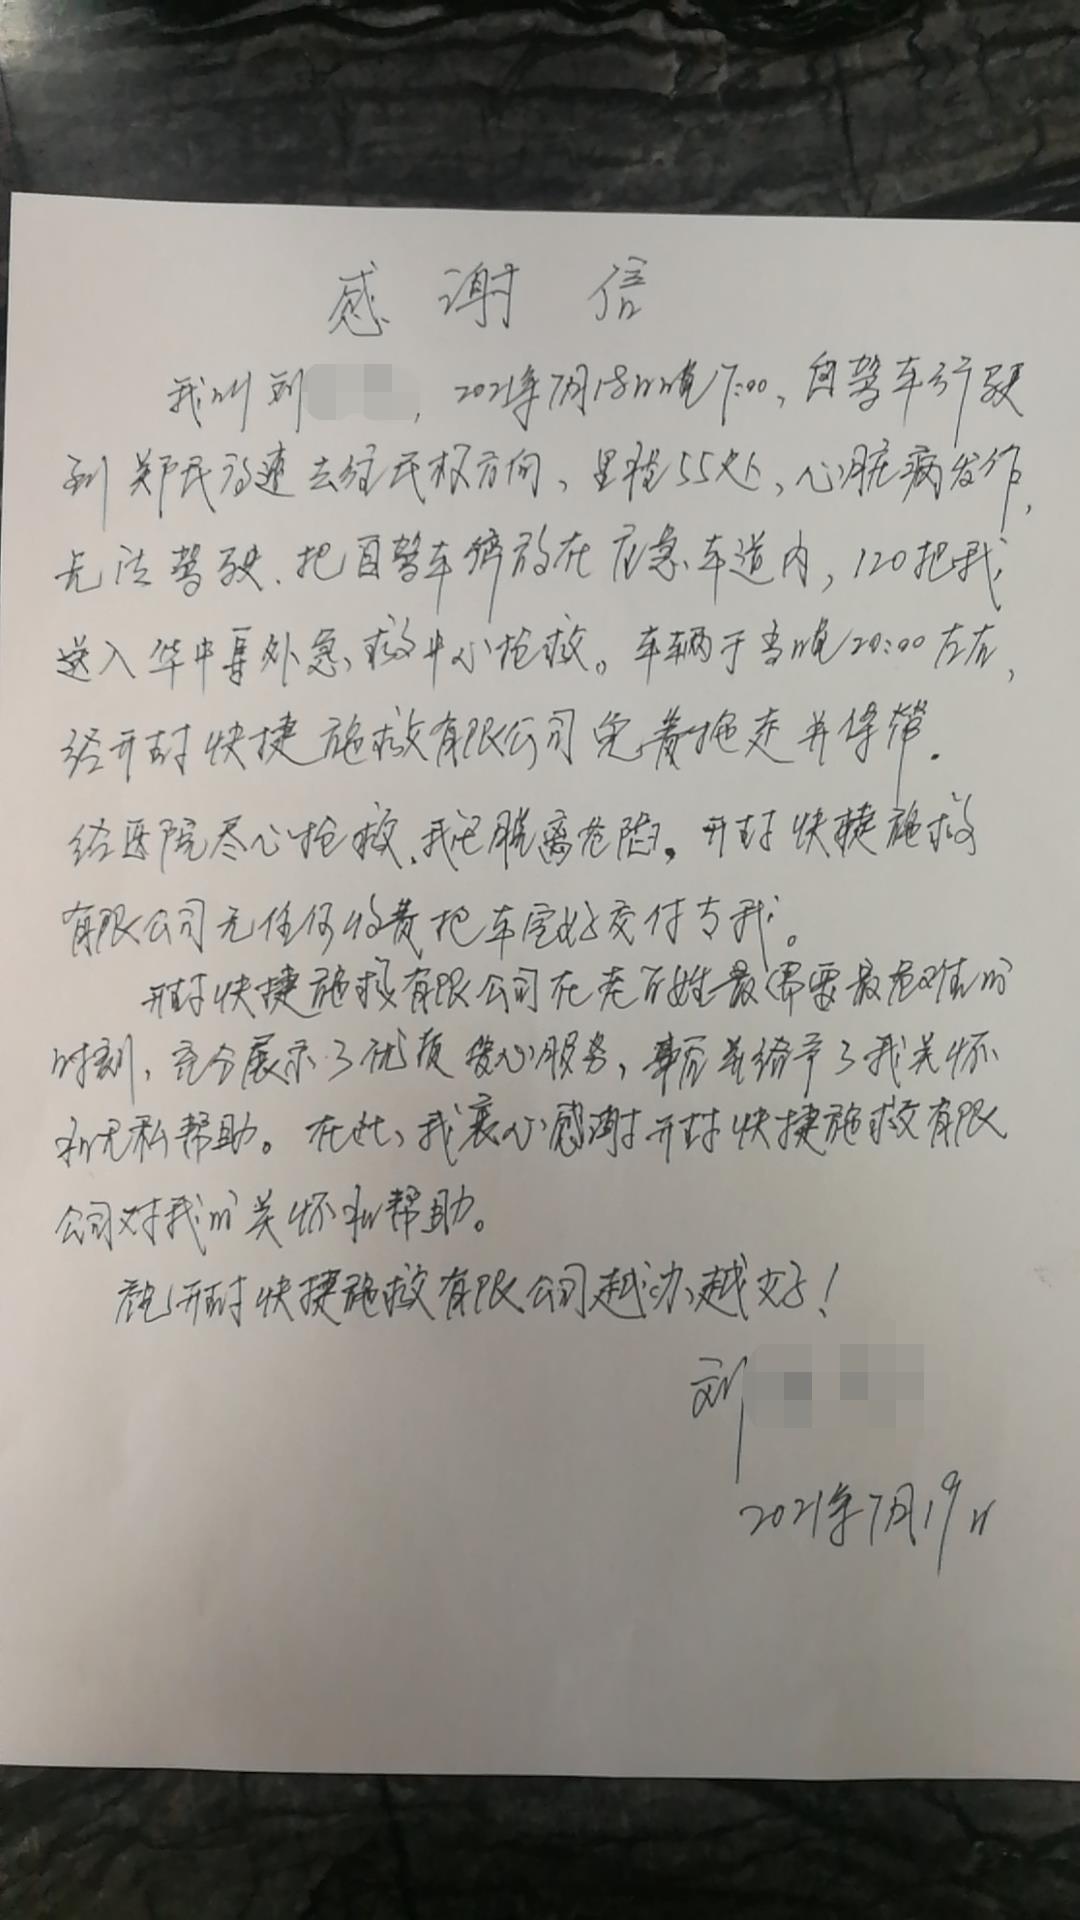 感谢信
我叫刘，2021年7月18日晚17:00，自驾车行驶
到郑民高速去往民权方向，里程55处，心脏病发作，
无法驾驶.把自驾车停放在应急车道内，120把我
送入华中阜外急救中心抢救。车辆于当晚20:00左右，
经开封快捷施救有限公司免费拖走并保管.
经医院尽心抢救.我已脱离危险。开封快捷施救
有限公司无任何收费把车完好交付与我。
开封快捷施救有限公司在老百姓最需要最危难的
时刻，充分展示了优质暖心服务，事后并给予了我关怀
和无私帮助。在此，我衷心感谢开封快捷施救有限
公司对我的关怀和帮助。
祝开封快捷施救有限公司越办越好！
刘
2021年7月19日